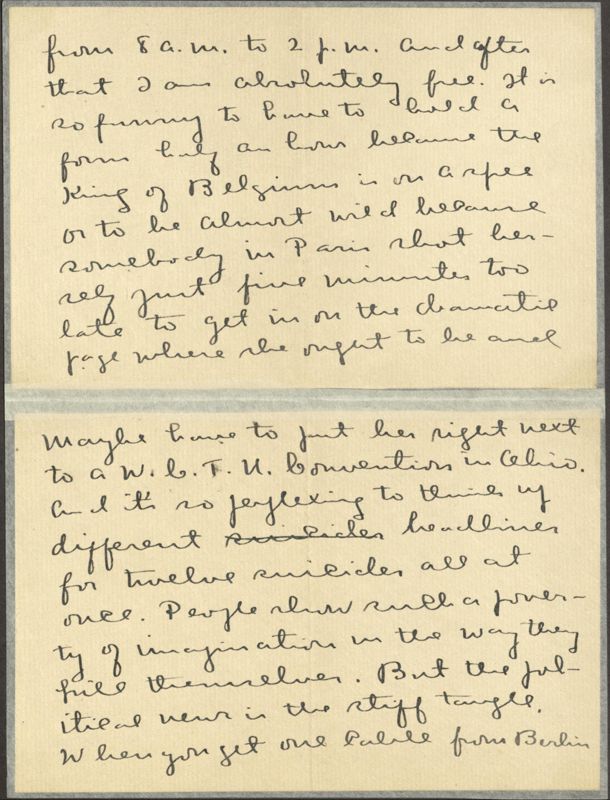 from 8 a.m. to 2 p.m. and after
that I am absolutely free. It is
so funny to have to hold a
form half an hour because the
King of Belgium is on a spee
or to be almost wild because
somebody in Paris shot her-
self just five minutes too
late to get in on the dramatic
page where she ought to be and
maybe have to put her right next
to a W. C. T. U. Convention in Ohio.
And it's so perplexing to think up
different suicides headlines
for twelve suicides all at
once. People show such a pover-
ty of imagination in the way they
kill themselves. But the pol-
itical news is the stiff tangle.
When you get one cable from Berlin